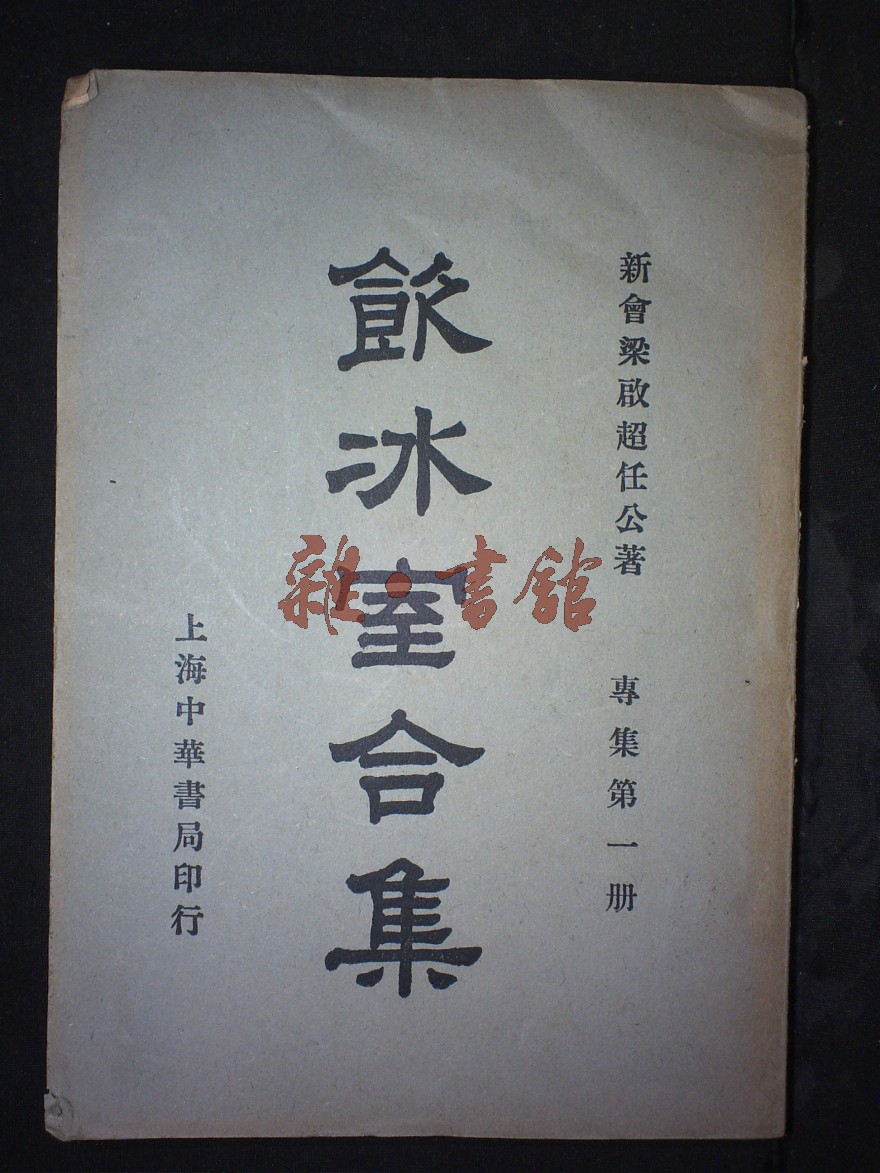 新會梁啟超任公著　專集第一册
飲冰室合集
上海中華書局印行
雜·書館